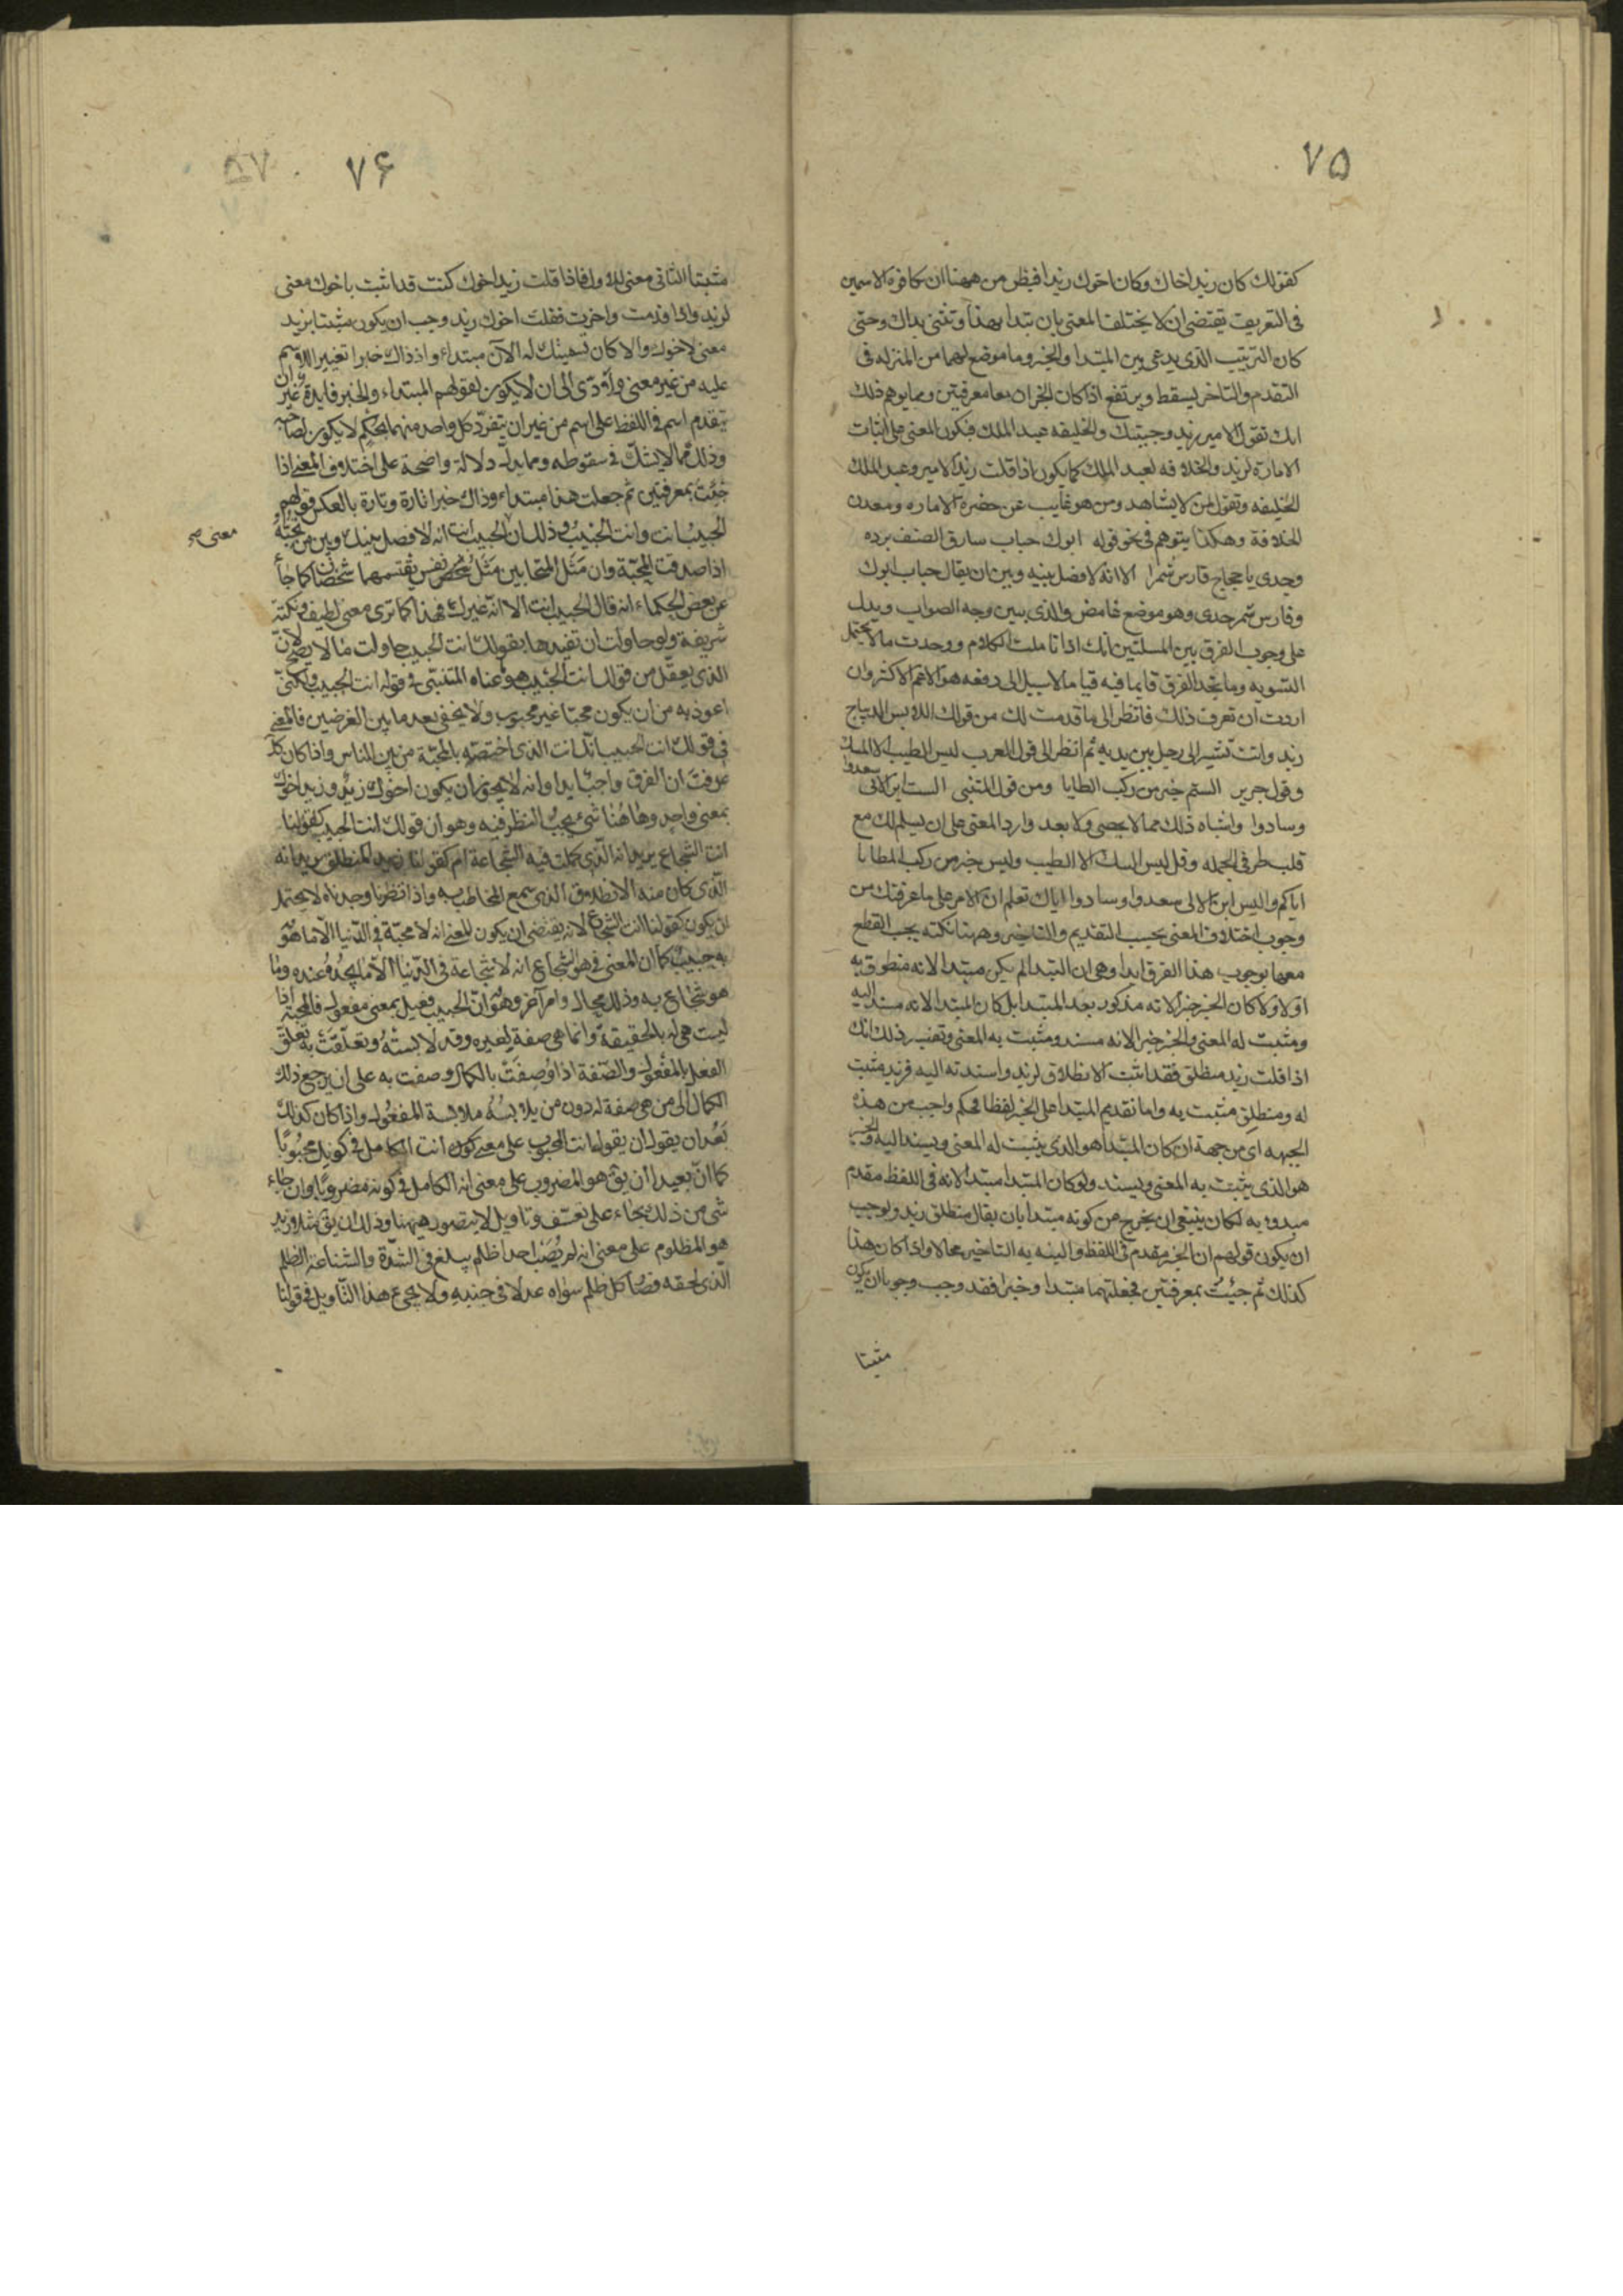 ٧٥
كقولك كان زيد اخاك وكان اخوك زيدا فيظن من ههنا ان تكافؤ الاسمين
فى التعريف يقتضى ان لا يختلف المعنى بان تبدا بهذا وتثنى بذاك وحتى
كان الترتيب الذى يدعى بين المبتدا والخبر وما موضع لهما من المنزله فى
التقدم والتاخر يسقط ويرتفع اذا كان الجزان معا معرفتين ومما يوهم ذلك
انك تقول الامير زيد وجيتك والخليفه عبد الملك فيكون المعنى على اثبات
الامارة لزيد والخلافه لعبد الملك كما يكون اذا قلت زيد الامير وعبد الملك
الخليفه وتقول لمن لا يشاهد ومن هو غايب عن حضرة الاماره ومعدن
الخلافة وهكذا يتوهم فى نحو قوله ابوك حباب سارق الضيف برده
وجدى يا حجاج فارس شمرا الا انه لا فضل بينه وبين ان يقال حباب ابوك
وفارس شمر جدى وهو موضع غامض والذى يبين وجه الصواب ويدل
على وجوب الفرق بين المسلتين انك اذا تاملت الكلام ووجدت ما لا يحتمل
التسويه وما تجد الفرق قايما فيه قياما لا سبيل الى دفعه هو الاعم الاكثر وان
اردت ان تعرف ذلك فانظر الى ما قدمت لك من قولك اللابس الديباج
زيد وانت تشير الى رجل بين يديه ثم انظر الى قول العرب ليس الطيب الا المسك
وقول جرير الستم خير من ركب المطايا ومن قول المتنبى الست ابن الالى سعدوا
وسادوا واشباه ذلك مما لا يحصى ولا يعد وارد المعنى على ان يسلم لك مع
قلب طرفى الجمله وقل ليس المسك الا الطيب وليس خير من ركب المطايا
اياكم واليس ابن الالى سعدوا وسادوا اياك تعلم ان الامر على ما عرفتك من
وجوب اختلاف المعنى بحسب التقديم والتاخير وههنا نكته يجب القطع
معها بوجوب هذا الفرق ابدا وهى ان المبتدا لم يكن مبتدا لانه منطوق به
اولا ولا كان الخبر خبرا لانه مذكور بعد المبتدا بل كان المبتدا مبتدا لانه مسند اليه
ومثبت له المعنى والخبر خبرا لانه مسند ومثبت به المعنى وتفسير ذلك انك
اذا قلت زيد منطلق فقد اثبت الانطلاق لزيد واسندته اليه فزيد مثبت
له ومنطلق مثبت به واما تقديم المبتدا على الخبر لفظا فحكم واجب من هذه
الجهه اى من جهة ان كان المبتدا هو الذى يثبت له المعنى ويسند اليه والخبر
هو الذى يثبت به المعنى ويسند ولو كان المبتدا مبتدا لانه فى اللفظ مقدم
مبدوء به لكان ينبغى ان يخرج من كونه مبتدا بان يقال منطلق زيد ولوجب
ان يكون قولهم ان الخبر مقدم فى اللفظ والنيه به التاخير محالا واذا كان هذا
كذلك ثم جئت بمعرفتين فجعلتهما مبتدا وخبرا فقد وجب وجوبا ان يكون
مثبتا
٧۶
٨٧
مثبتا الثانى معنى للاول فاذا قلت زيد اخوك كنت قد اثبت باخوك معنى
لزيد واذا قدمت واخرت فقلت اخوك زيد وجب ان يكون مثبتا بزيد
معنى لاخوك والا كان تسميتك له الآن مبتداء واذ ذاك خبرا تغييرا للاسم
عليه من غير معنى ولادى الى ان لا يكون لقولهم المبتداء والخبر فايدة غير ان
يتقدم اسم فى اللفظ على اسم من غير ان يتفرد كل واحد منهما بحكم لا يكون لصاحبه
وذلك مما لا يشك فى سقوطه ومما يدل دلالة واضحة على اختلاف المعنى اذا
جئت بمعرفتين ثم جعلت هذا مبتداء وذاك خبرا تارة وتارة بالعكس قولهم
الحبيب انت وانت الحبيب وذلك ان الحبيب انت انه لا فصل بينك وبين من تحبه
معنى صح
اذا صدقت المحبة وان مثل المتحابين مثل نفس يقتسمها شخصان كما جاء
عن بعض الحكماء انه قال الحبيب انت الا انه غيرك فهذا كما ترى معنى لطيف ونكتة
شريفة ولو حاولت ان تفيدها بقولك انت الحبيب حاولت ما لا يصح لان
الذى يعقل من قولك انت الحبيب هو ما عناه المتنبى فى قوله انت الحبيب ولكنى
اعوذ به من ان يكون محبا غير محبوب ولا يخفى بعد ما بين الغرضين فالمعنى
فى قولك انت الحبيب انك انت الذى اختصه بالمحبة من بين الناس واذا كان كذلك
عرفت ان الفرق واجب ابدا وانه لا يجوز ان يكون اخوك زيد وزيد اخوك
بمعنى واحد وهاهنا شىء يجب النظر فيه وهو ان قولك انت الحبيب كقولنا
انت الشجاع يريد انه الذى كملت فيه الشجاعة ام كقولنا زيد المنطلق يريد انه
الذى كان منه الانطلاق الذى سمع المخاطب به واذا نظرنا وجدناه لا يحتمل
ان يكون كقولنا انت الشجاع لانه يقتضى ان يكون المعنى انه لا محبة فى الدنيا الا ما هو
به حبيب كما ان المعنى فى هو الشجاع انه لا شجاعة فى الدنيا الا ما تجده عنده وما
هو شجاع به وذلك محال وامر آخر وهو ان الحبيب فعيل بمعنى مفعول فالمحبة اذا
ليست هى له بالحقيقة وانما هى صفة لغيره قد لابسته وتعلقت به تعلق
الفعل بالمفعول والصفة اذا وصفت بالكمال وصفت به على ان يرجع ذلك
الكمال الى من هى صفة له دون من يلابسه ملابسة المفعول واذا كان كذلك
بعد ان يقول ان يقول انت المحبوب على معنى انت الكامل فى كونك محبوبا
كما ان بعيدا ان يق هو المضروب على معنى انه الكامل فى كونه مضروبا وان جاء
شىء من ذلك جاء على تعسف وتاويل لا يتصور ههنا وذلك ان يق مثلا زيد
هو المظلوم على معنى انه لم يصب احدا ظلم يبلغ فى الشدة والشناعة الظلم
الذى لحقه فصار كل ظلم سواه عدلا فى جنبه ولا يجىء هذا التاويل فى قولنا